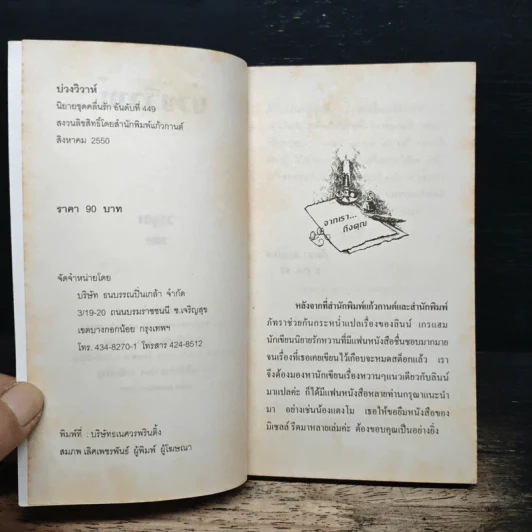 บ่วงวิวาห์
นิยายชุดคลื่นรัก อันดับที่ 449
สงวนลิขสิทธิ์โดยสำนักพิมพ์แก้วกานต์
สิงหาคม 2550
ราคา 90 บาท
จัดจำหน่ายโดย
บริษัท ธนบรรณปิ่นเกล้า จำกัด
3/19-20 ถนนบรมราชชนนี ซ.เจริญสุข
เขตบางกอกน้อย กรุงเทพฯ
โทร. 434-8270-1 โทรสาร 424-8512
พิมพ์ที่ : บริษัทธเนศวรพริ้นติ้ง
สมภพ เลิศเพชรพันธ์ ผู้พิมพ์ ผู้โฆษณา
จากเรา...
ถึงคุณ
หลังจากที่สำนักพิมพ์แก้วกานต์และสำนักพิมพ์
ภัทราช่วยกันกระหน่ำแปลเรื่องของลินน์ เกรแฮม
นักเขียนนิยายรักหวานที่มีแฟนหนังสือชื่นชอบมากมาย
จนเรื่องที่เธอเคยเขียนไว้เกือบจะหมดสต็อกแล้ว เรา
จึงต้องมองหานักเขียนเรื่องหวานๆแนวเดียวกับลินน์
มาแปลค่ะ ก็ได้มีแฟนหนังสือหลายท่านกรุณาแนะนำ
มา อย่างเช่นน้องแตงโม เธอให้ขอยืมหนังสือของ
มิเชลล์ รีดมาหลายเล่มค่ะ ต้องขอบคุณเป็นอย่างยิ่ง